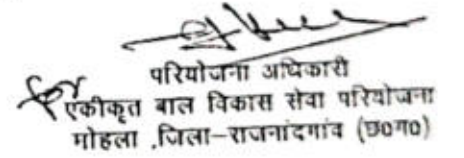 परियोजना अधिकारी
एकीकृत बाल विकास सेवा परियोजना
मोहला ,जिला-राजनांदगांव (छ०ग०)